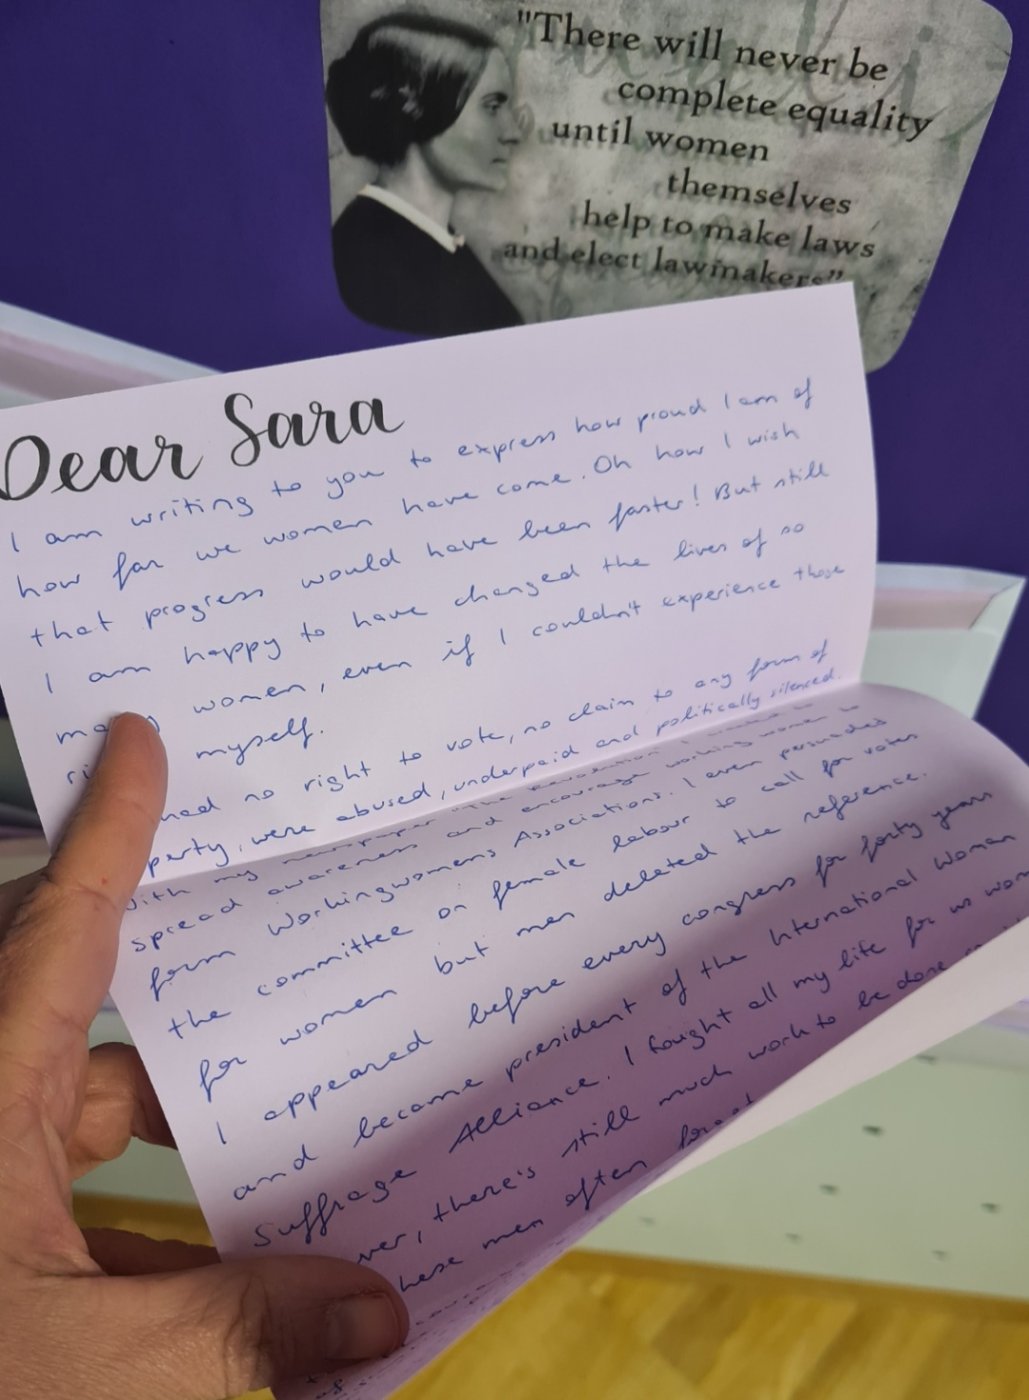 "There will never be
complete equality
until women
themselves
help to make laws
and elect lawmakers"
Dear Sara
I am writing to you to express how proud I am of
how far we women have come. Oh how I wish
that progress would have been faster! But still
I am happy to have changed the lives of so
women, even if I couldn't experience those
myself.
had no right to vote, no claim to any form of
perty, were abused, underpaid and politically silenced.
With my newspaper "The Revolution" I wanted to
spread awareness and encourage working women to
form Workingwomens Associations. I even persuaded
the committee on female labour to call for votes
for women but men deleted the reference.
I appeared before every congress for forty years
and became president of the International Woman
Suffrage Alliance. I fought all my life for us
ver, there's still much work to be done
hese men often forget